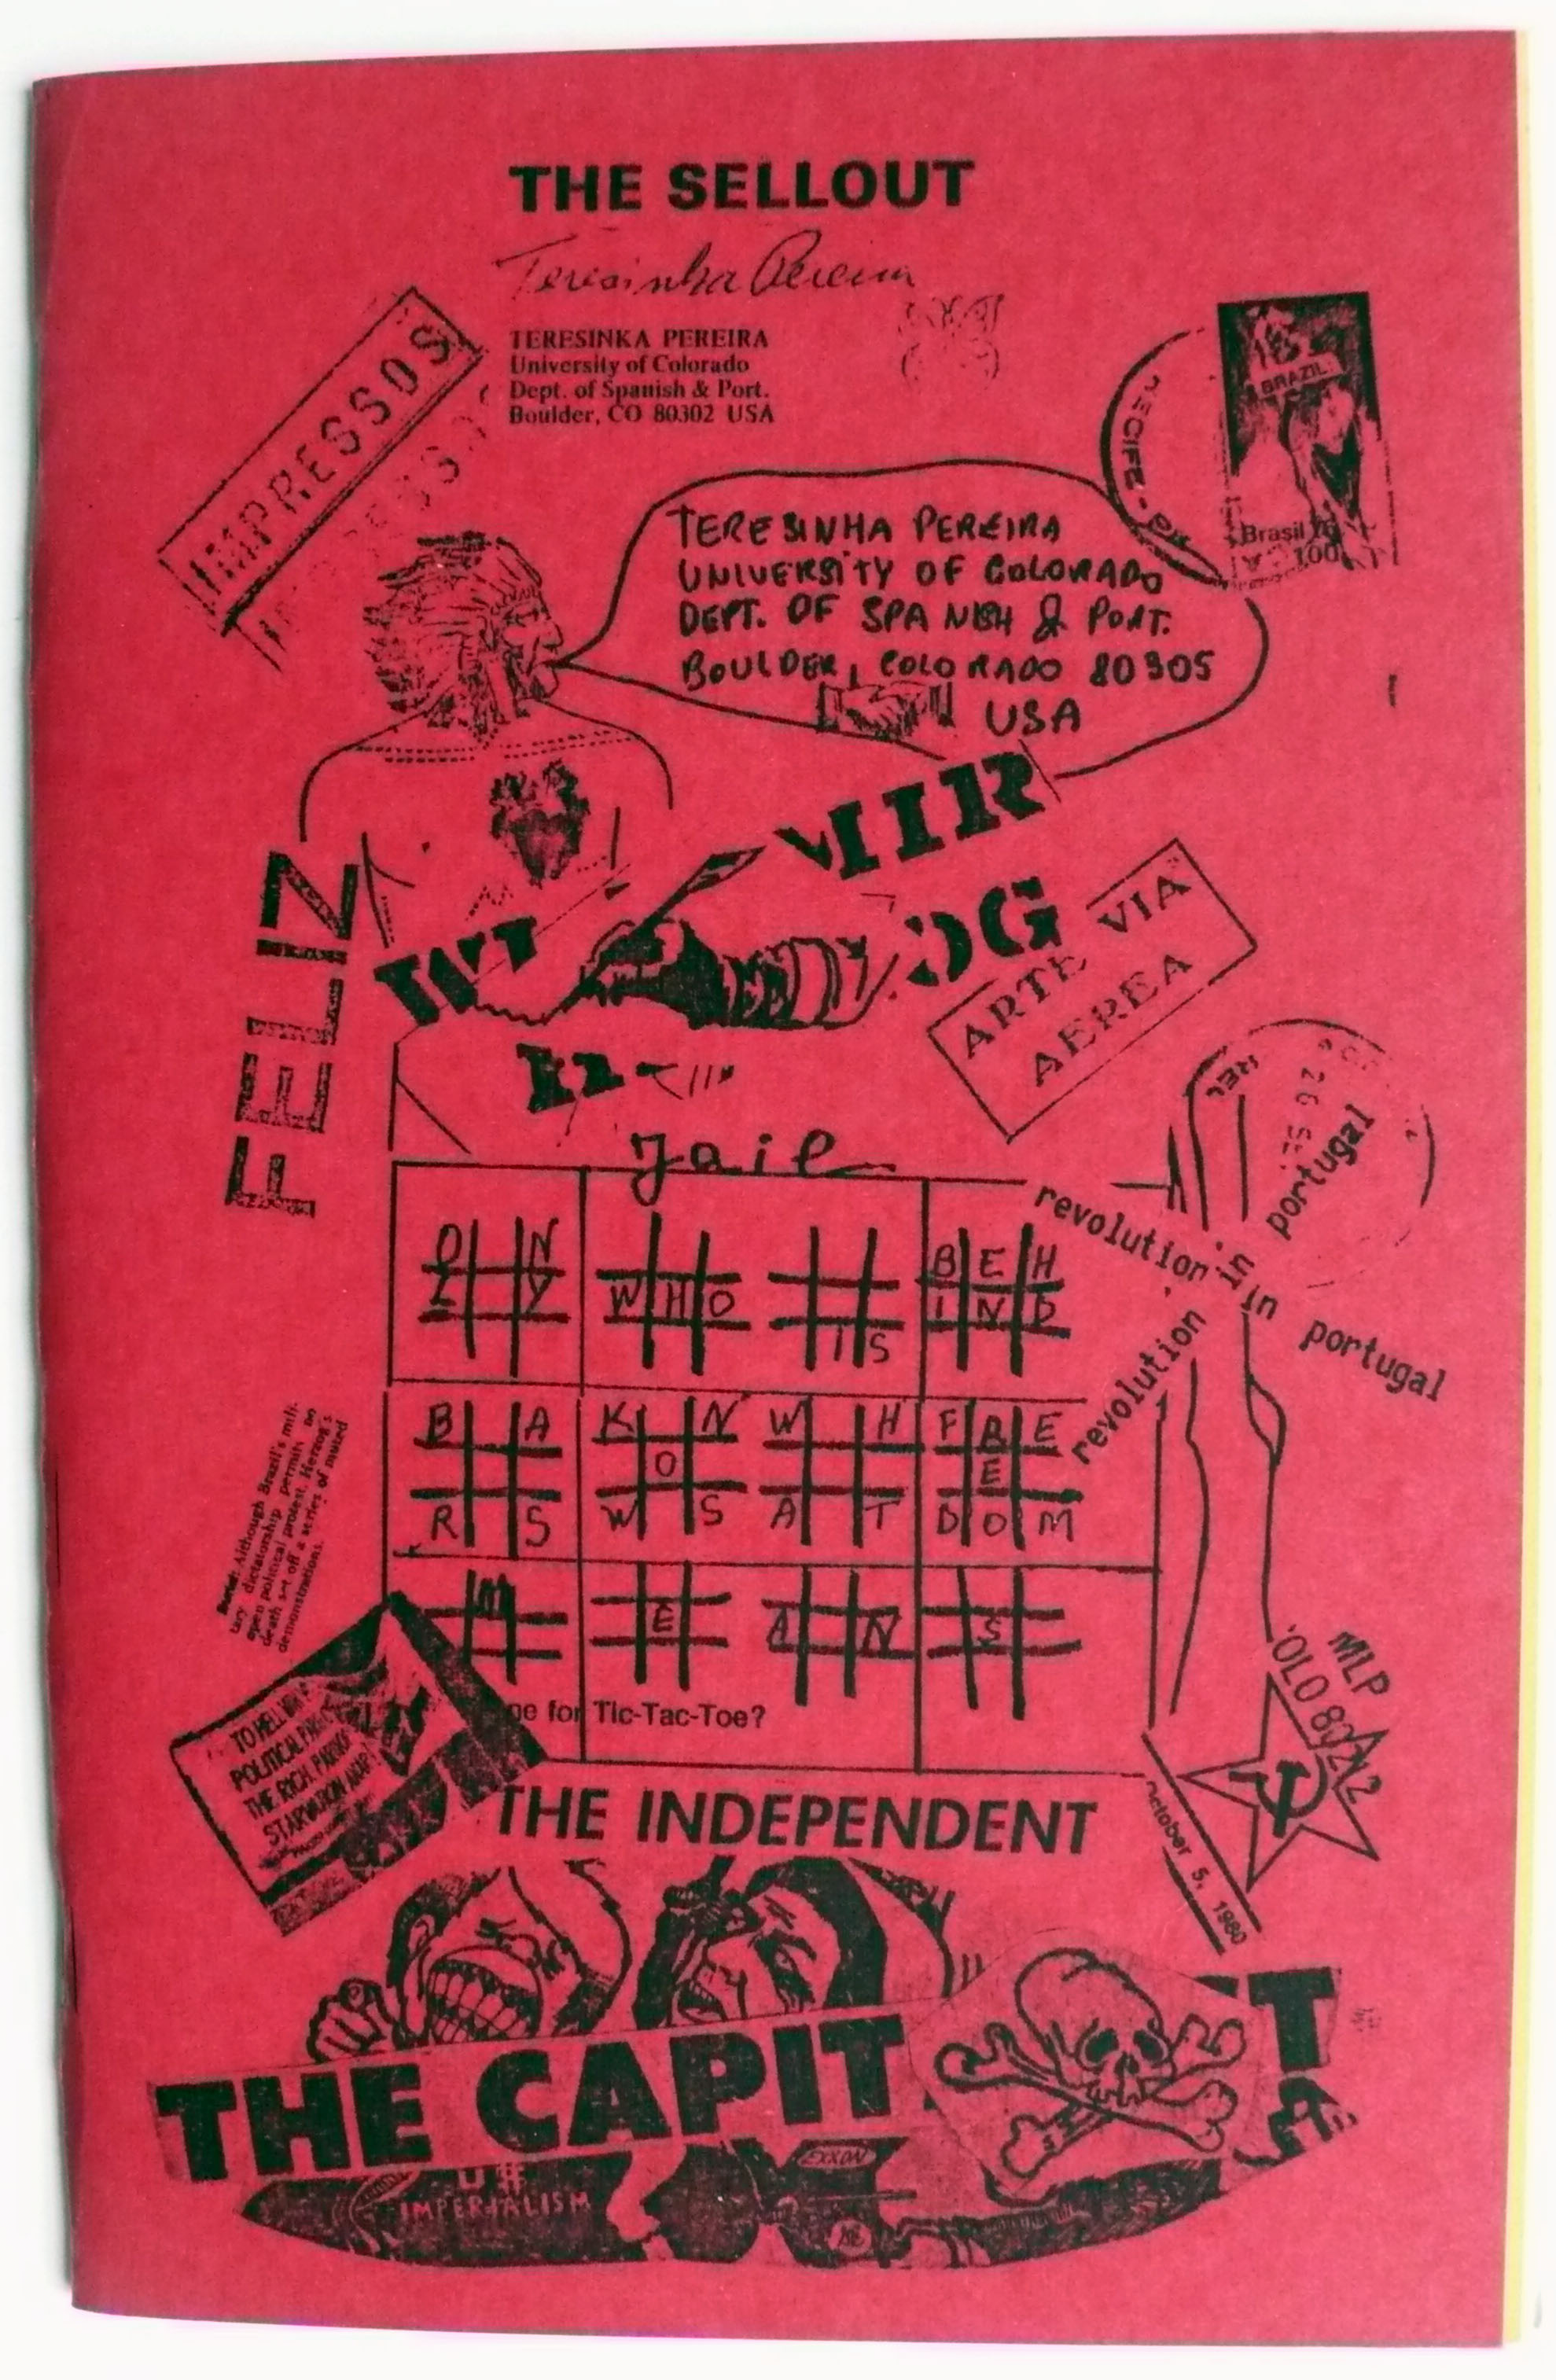 THE SELLOUT
Teresinka Pereira
TERESINKA PEREIRA
University of Colorado
Dept. of Spanish & Port.
Boulder, CO 80302 USA
IMPRESSOS
RECIFE - PE
BRAZIL
Brasil 76
100
TERESINHA PEREIRA
UNIVERSITY OF COLORADO
DEPT. OF SPANISH & PORT.
BOULDER, COLORADO 80305
USA
FELIZ
ARTE VIA
AEREA
Jail
revolution in portugal
revolution in portugal
O N
L Y
W H O
I S
B E H
I N D
B A
R S
K N
O
W S
W H
A T
F R E
E
D O M
M
E
A N
S
for Tic-Tac-Toe?
Although Brazil's mili-
tary dictatorship permits no
open political protest, Herzog's
death set off a series of muted
demonstrations.
TO HELL WITH
POLITICAL
THE RICH
STARVATION
MLP
October 5, 1980
THE INDEPENDENT
THE CAPIT T
U$
IMPERIALISM
EXXON